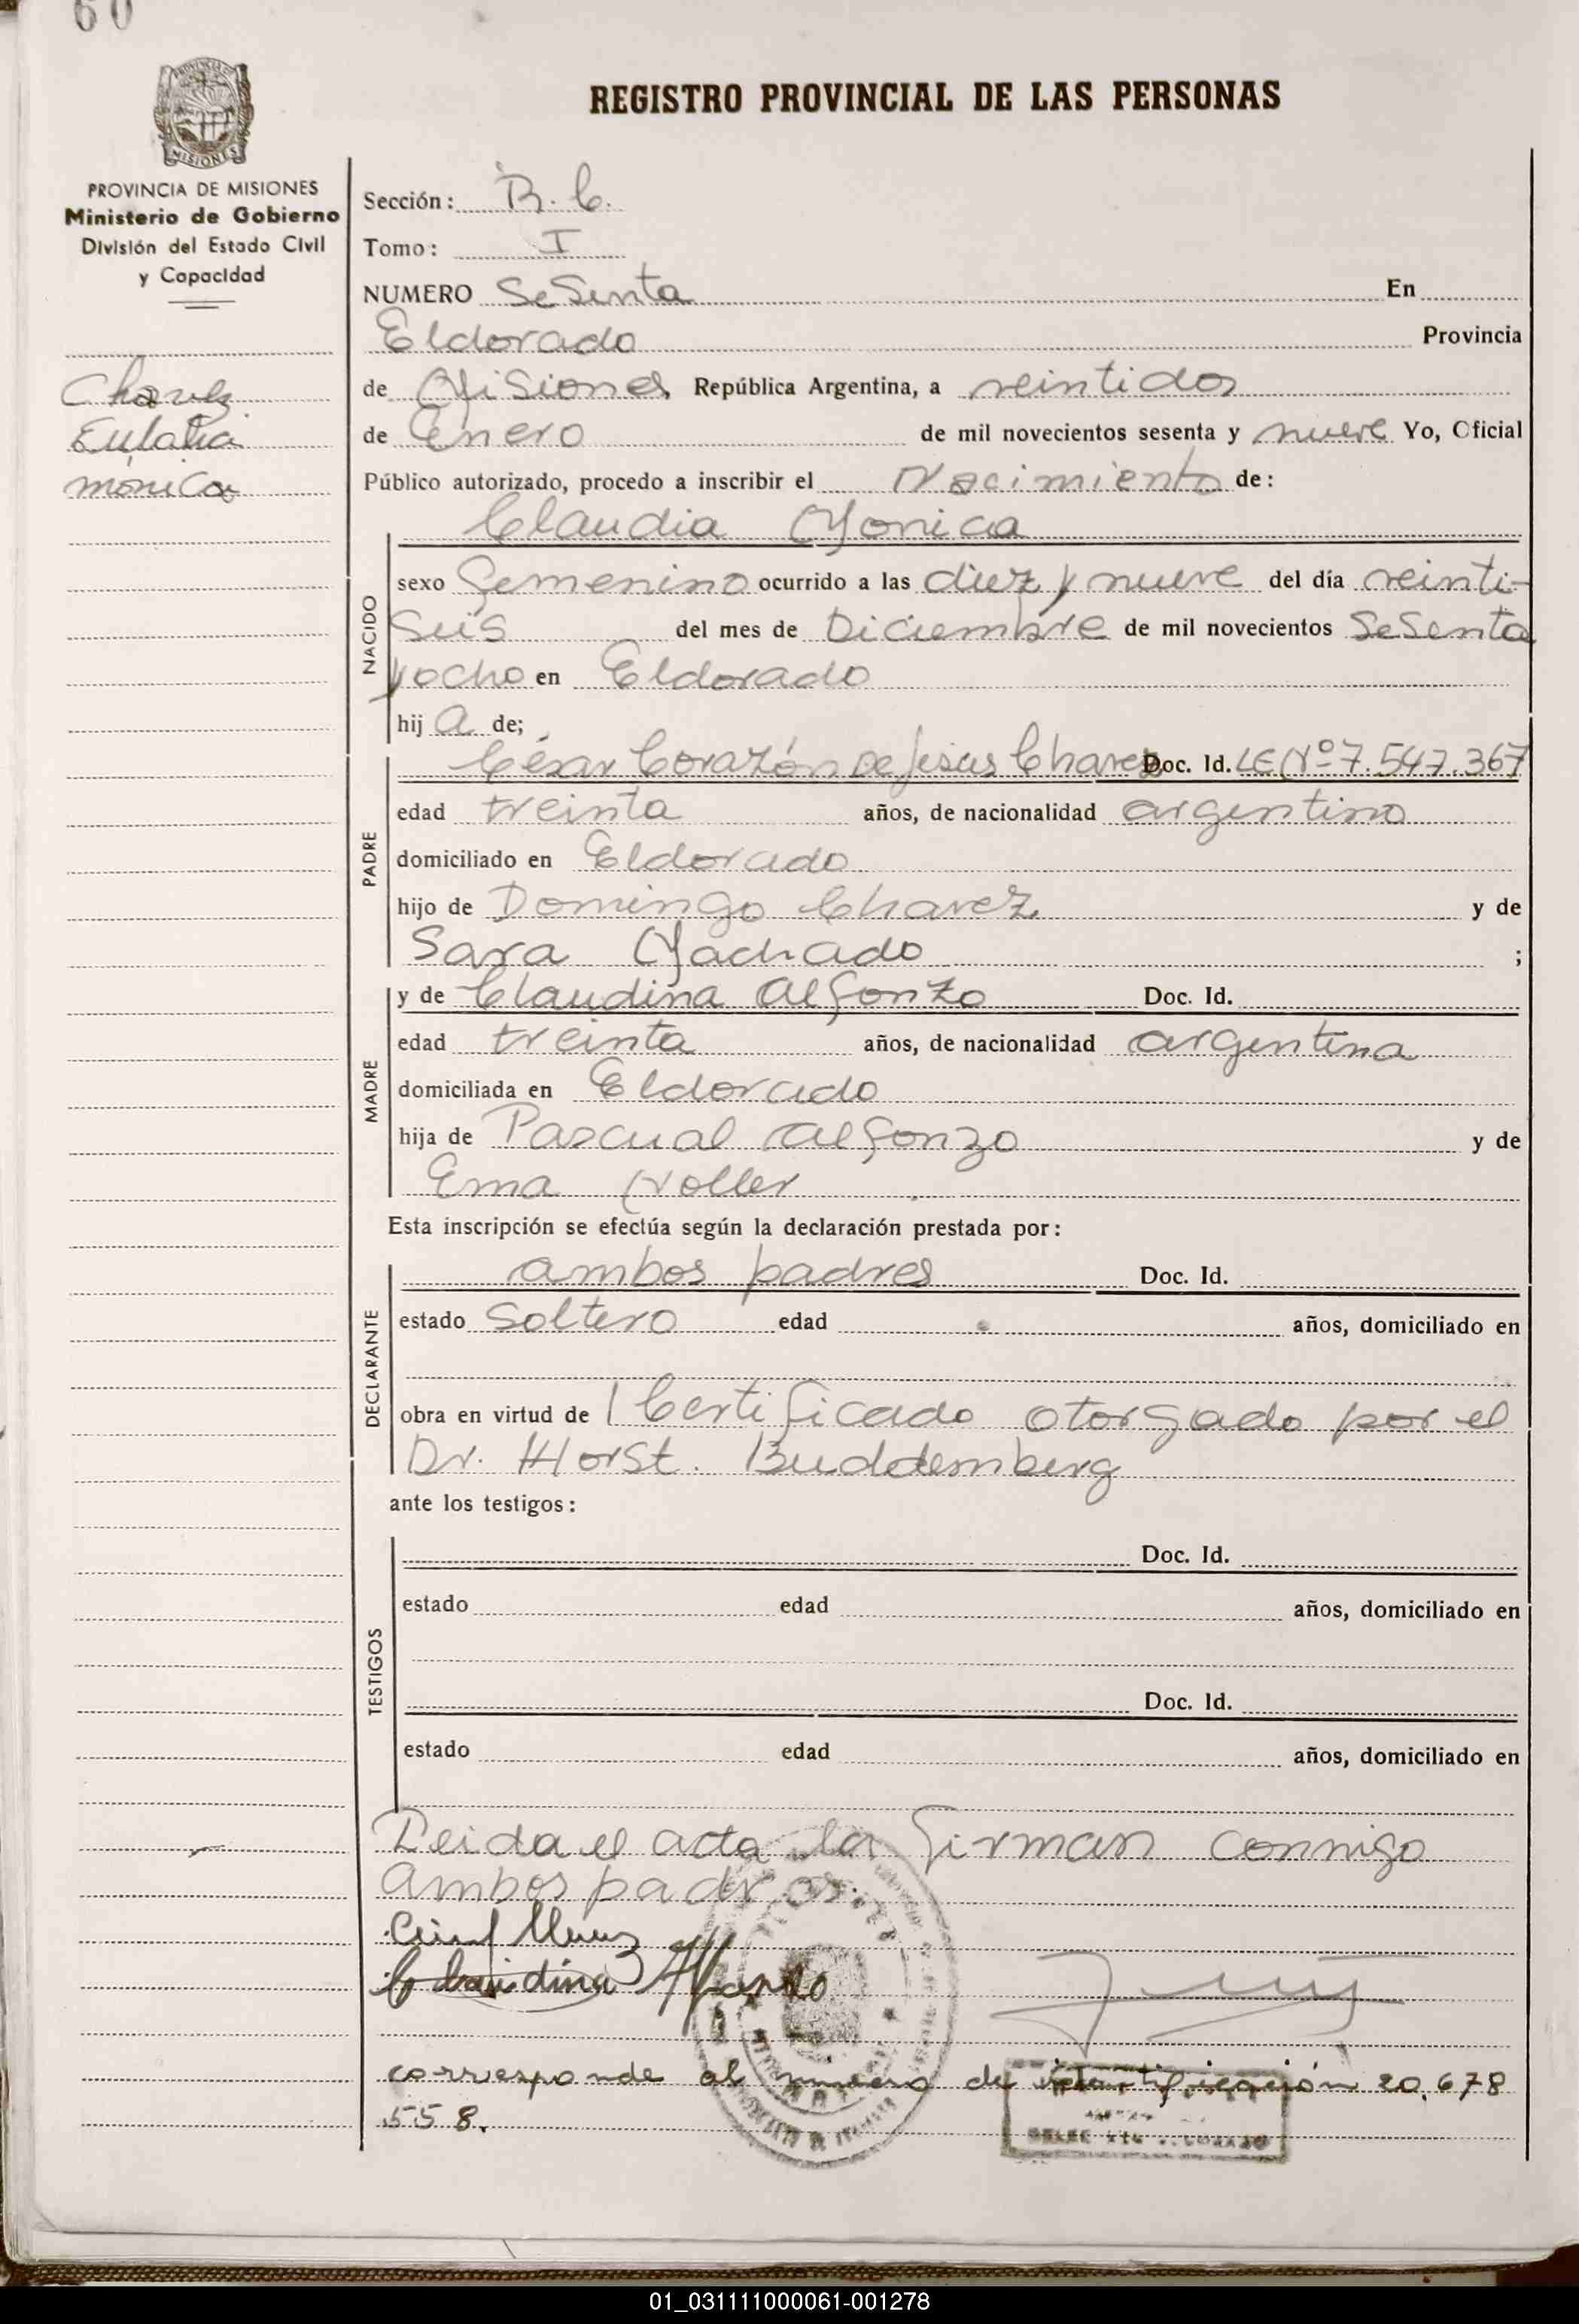 60
REGISTRO PROVINCIAL DE LAS PERSONAS
MISIONES
PROVINCIA DE MISIONES
Ministerio de Gobierno
División del Estado Civil
y Capacidad
Chavez
Eulalia
mónica
Sección: B. C.
Tomo: I
NUMERO SeSenta En
Eldorado Provincia
de Misiones República Argentina, a veintidos
de Enero de mil novecientos sesenta y nueve Yo, Oficial
Público autorizado, procedo a inscribir el Nacimiento de:
Claudia Monica
NACIDO
sexo Femenino ocurrido a las diez y nueve del día veinti-
seis del mes de Diciembre de mil novecientos SeSenta
y ocho en Eldorado
hij a de;
PADRE
César Corazón De Jesús Chavez Doc. Id. LE Nº 7.547.367
edad treinta años, de nacionalidad argentino
domiciliado en Eldorado
hijo de Domingo Chavez y de
Sara Machado ;
MADRE
y de Claudina Alfonzo Doc. Id.
edad treinta años, de nacionalidad argentina
domiciliada en Eldorado
hija de Pascual Alfonzo y de
Ema Noller
Esta inscripción se efectúa según la declaración prestada por:
DECLARANTE
ambos padres Doc. Id.
estado Soltero edad años, domiciliado en
obra en virtud de 1 Certificado otorgado por el
Dr. Horst. Buddemberg
ante los testigos:
TESTIGOS
Doc. Id.
estado edad años, domiciliado en
Doc. Id.
estado edad años, domiciliado en
Leida el acta la firman conmigo
ambos padres.
Claudina Alfonzo
corresponde al número de identificación 20.678
558.
01_031111000061-001278